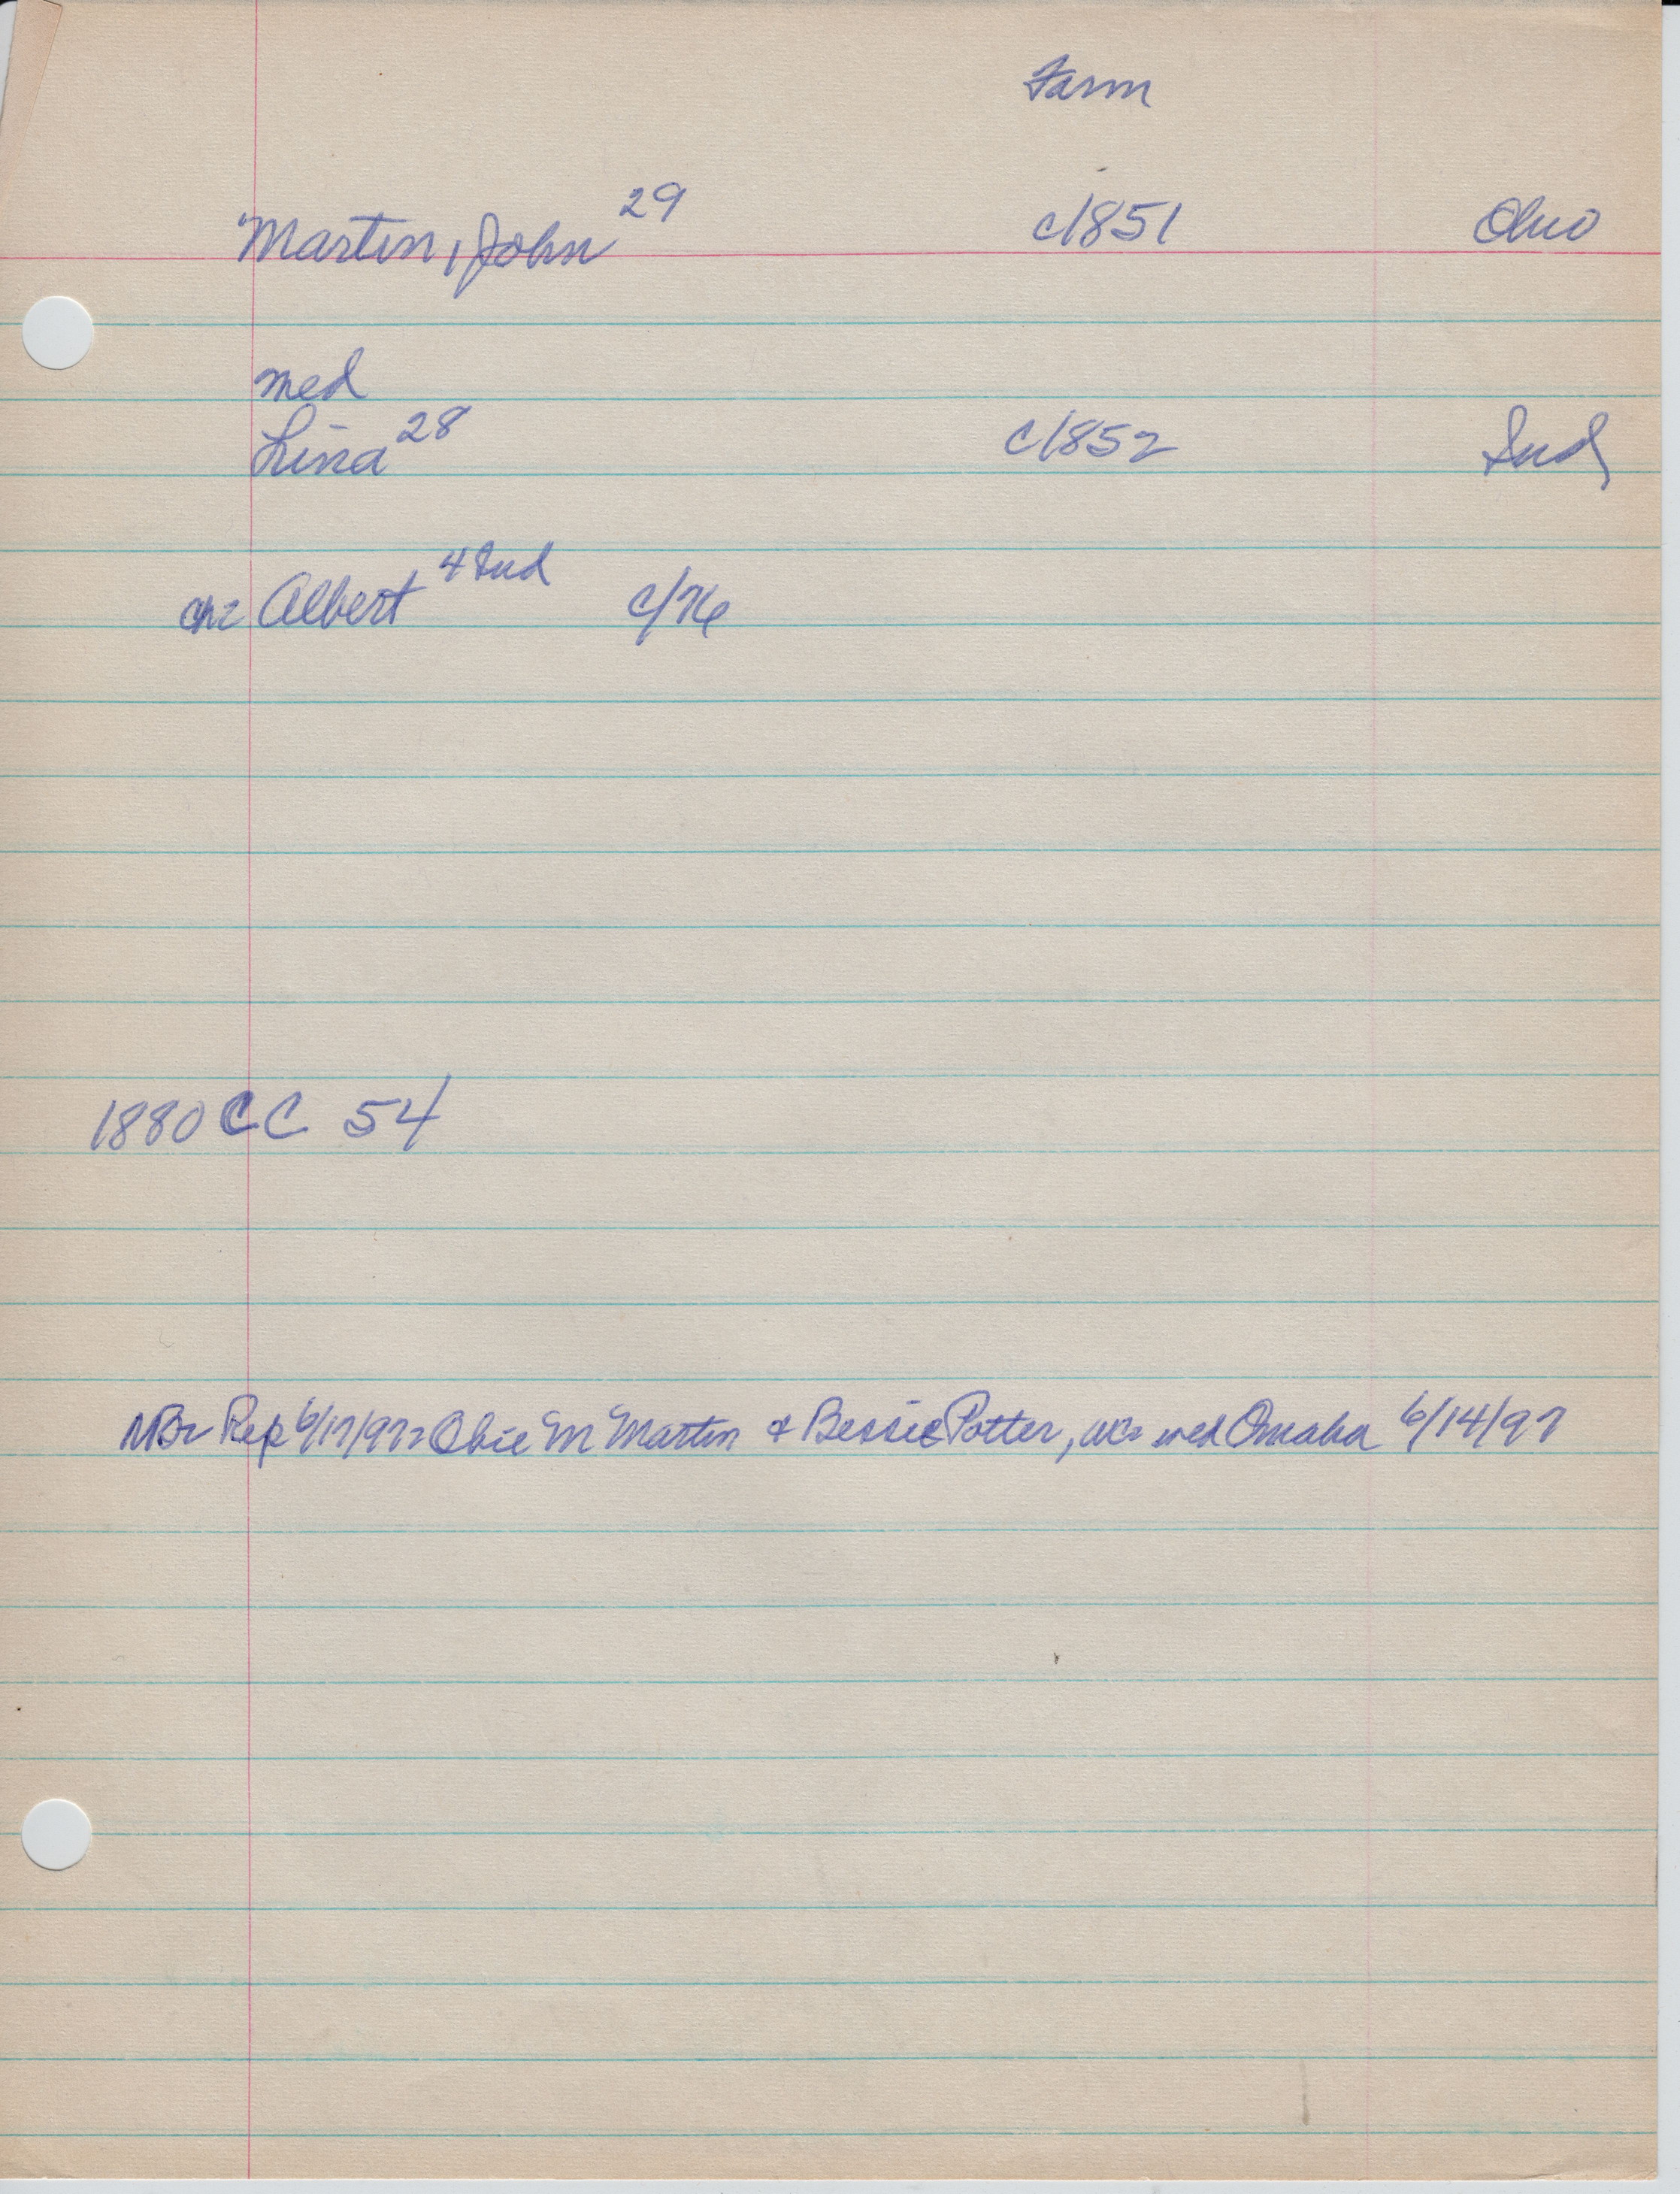 Farm
Martin, John 29 c1851 Ohio
med
Lina 28 c1852 Ind
ch: Albert 4 Ind c/76
1880 CC 54
Rep 6/17/97: Obie M Martin & Bessie Potter, med Omaha 6/14/97